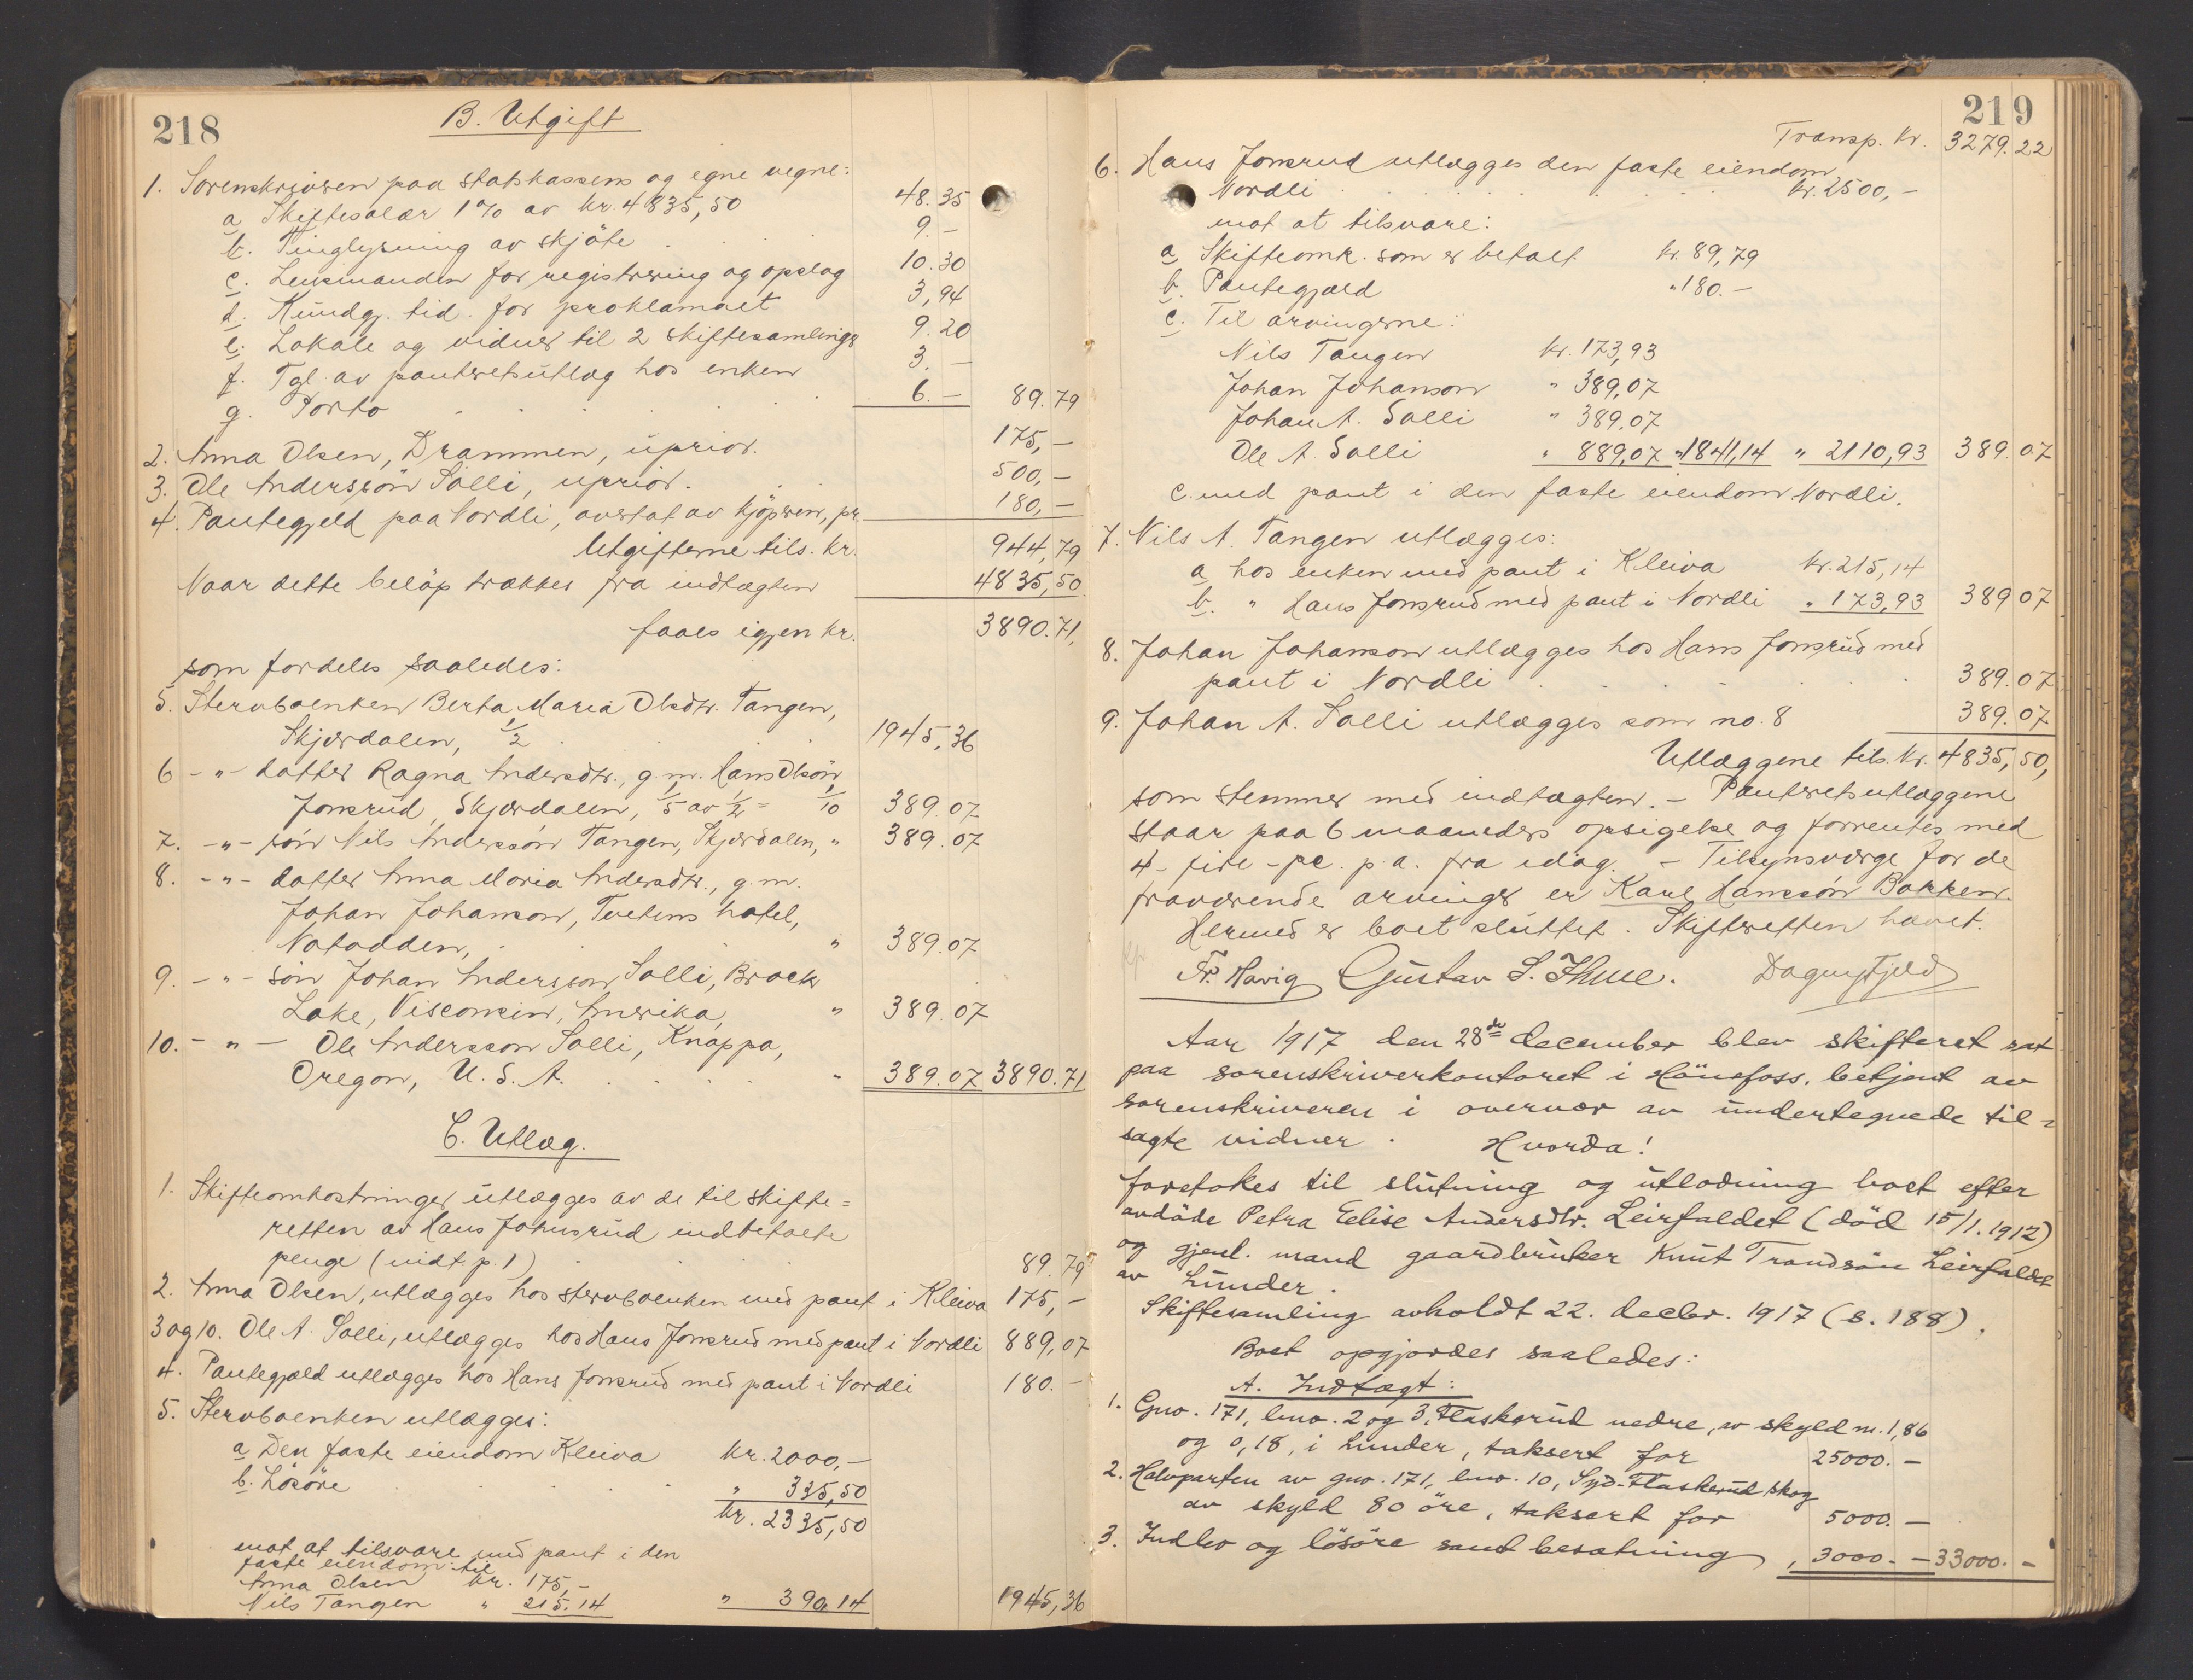 218
B. Utgift
1. Sorenskriveren paa statskassens og egne vegne:
a Skiftesalær 1% av kr. 4835,50 48.35
b. Tinglysning av skjöte 9.-
c. Lensmanden for registrering og opslag 10.30
d. Kundgj. tid. for proklamaet 3,94
e. Lokale og vidner til 2 skiftesamlinger 9.20
f. Tgl. av panteretsutlæg hos enken 3.-
g. Porto 6.- 89.79
2. Anna Olsen, Drammen, uprior. 175,-
3. Ole Anderssön Solli, uprior. 500,-
4. Pantegjeld paa Nordli, overtat av kjöperen, pr. 180,-
Utgifterne tils. kr. 944,79
Naar dette belöp trækkes fra indtægten 4835,50
faaes igjen kr. 3890.71,
som fordeles saaledes:
5. Stervboenken Berta Maria Olsdtr. Tangen,
Skjærdalen, 1/2 1945,36
6 -"- datter Ragna Andersdtr., g.m. Hans Olsön
Jonsrud, Skjærdalen, 1/5 av 1/2 = 1/10 389.07
7. -"- sön Nils Anderssön Tangen, Skjærdalen, " 389.07
8. -"- datter Anna Maria Andersdtr., g.m.
Johan Johanson, Tvetens hotel,
Notodden, " 389.07
9. -"- sön Johan Andersson Solli, Brock
Lake, Visconsin, Amerika, " 389.07
10. -"- Ole Andersson Solli, Knappa,
Oregon, U.S.A. " 389.07 3890.71
C. Utlæg.
1. Skifteomkostninger utlægges av de til skifte=
retten av Hans Johnsrud indbetalte
penge (indt p. 1) 89.79
2. Anna Olsen, utlægges hos stervboenken med pant i Kleiva 175,-
3 og 10. Ole A. Solli, utlægges hos Hans Jonsrud med pant i Nordli 889,07
4. Pantegjæld utlægges hos Hans Jonsrud med pant i Nordli 180.-
5. Stervboenken utlægges:
a Den faste eiendom Kleiva kr. 2000,-
b. Lösöre " 335,50
kr. 2335,50
mot at tilsvare med pant i den
faste eiendom: til
Anna Olsen kr. 175,-
Nils Tangen " 215.14 " 390,14 1945,36
219
Transp. kr. 3279.22
6. Hans Jonsrud utlægges den faste eiendom
Nordli kr. 2500,-
mot at tilsvare:
a Skifteomk. som er betalt kr. 89,79
b. Pantegjæld " 180.-
c. Til arvingerne:
Nils Tangen kr. 173,93
Johan Johanson " 389,07
Johan A. Solli " 389.07
Ole A. Solli " 889,07 " 1841,14 " 2110,93 389.07
c. med pant i den faste eiendom Nordli.
7. Nils A. Tangen utlægges:
a hos enken med pant i Kleiva kr. 215,14
b. " Hans Jonsrud med pant i Nordli " 173,93 389 07
8. Johan Johanson utlægges hos Hans Jonsrud med
pant i Nordli 389.07
9. Johan A. Solli utlægges som no. 8 389.07
Utlæggene tils. kr. 4835,50,
som stemmer med indtægten. - Panteretsutlæggene
staar paa 6 maaneders opsigelse og forrentes med
4 - fire - pc. p.a. fra idag. - Tilsynsværge for de
fraværende arvinger er Karl Hanssön Bakken.
Hermed er boet sluttet. Skifteretten hævet.
Fr. Havig Gustav S. Ihme. Dagny Fjeld
Aar 1917 den 28de december blev skifteret sat
paa sorenskriverkontoret i Hönefoss, betjent av
sorenskriveren i overvær av undertegnede til=
sagte vidner. Hvorda!
foretokes til slutning og utlodning boet efter
avdöde Petra Elise Andersdtr. Leirfaldet (död 15/1.1912)
og gjenl. mand gaardbruker Knut Trondsön Leirfaldet
av Lunder.
Skiftesamling avholdt 22. decbr. 1917 (s. 188).
Boet opgjordes saaledes:
A. Indtægt:
1. Gno. 171, bno. 2 og 3, Flaskerud nedre, av skyld m. 1,86
og 0,18, i Lunder, taksert for 25000.-
2. Halvparten av gno. 171, bno. 10, Syd-Flaskerud skog
av skyld 80 öre, taksert for 5000.-
3. Indbo og lösöre samt besætning, 3000.- 33000.-